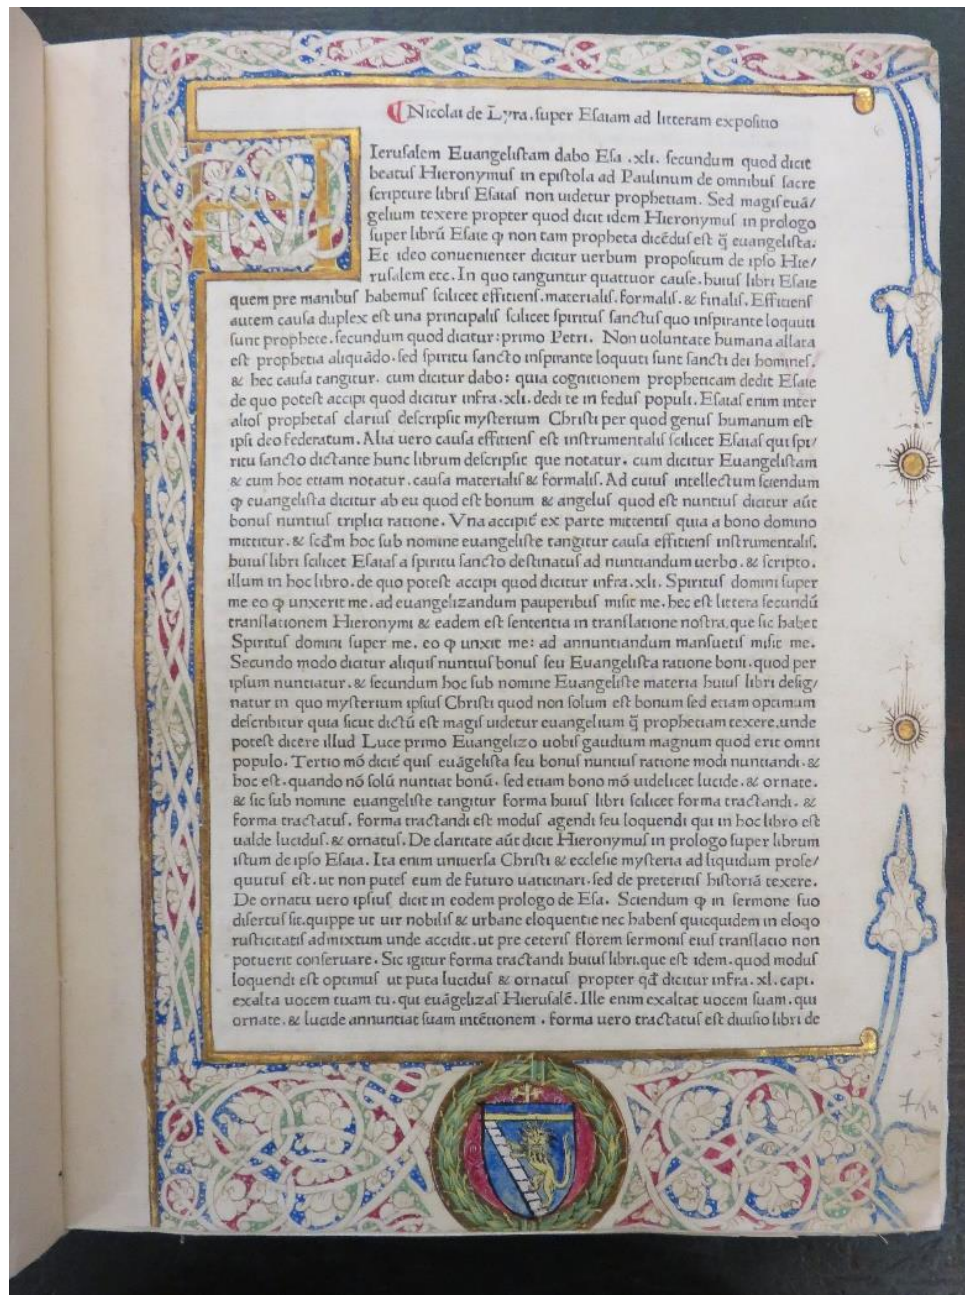 Nicolai de Lyra. super Esaiam ad litteram expositio
HIerusalem Euangelistam dabo Esa .xli. secundum quod dicit
beatus Hieronymus in epistola ad Paulinum de omnibus sacre
scripture libris Esaias non uidetur prophetiam. Sed magis euā/
gelium texere propter quod dicit idem Hieronymus in prologo
super librū Esaie ꝙ non tam propheta dicēdus est q̄ euangelista.
Et ideo conuenienter dicitur uerbum propositum de ipso Hie/
rusalem etc. In quo tanguntur quattuor cause. huius libri Esaie
quem pre manibus habemus scilicet efficiens. materialis. formalis. & finalis. Efficiens
autem causa duplex est una principalis scilicet spiritus sanctus quo inspirante loquuti
sunt prophete. secundum quod dicitur: primo Petri. Non uoluntate humana allata
est prophetia aliquādo. sed spiritu sancto inspirante loquuti sunt sancti dei homines.
& hec causa tangitur. cum dicitur dabo: quia cognitionem propheticam dedit Esaie
de quo potest accipi quod dicitur infra .xli. dedi te in fedus populi. Esaias enim inter
alios prophetas clarius descripsit mysterium Christi per quod genus humanum est
ipsi deo federatum. Alia uero causa efficiens est instrumentalis scilicet Esaias qui spi/
ritu sancto dictante hunc librum descripsit que notatur. cum dicitur Euangelistam
& cum hoc etiam notatur. causa materialis & formalis. Ad cuius intellectum sciendum
ꝙ euangelista dicitur ab eu quod est bonum & angelus quod est nuntius dicitur aūt
bonus nuntius triplici ratione. Vna accipit̄ ex parte mittentis quia a bono domino
mittitur. & scd̄m hoc sub nomine euangeliste tangitur causa efficiens instrumentalis.
huius libri scilicet Esaias a spiritu sancto destinatus ad nuntiandum uerbo. & scripto.
illum in hoc libro. de quo potest accipi quod dicitur infra .xli. Spiritus domini super
me eo ꝙ unxerit me. ad euangelizandum pauperibus misit me. hec est littera secundū
translationem Hieronymi & eadem est sententia in translatione nostra. que sic habet
Spiritus domini super me. eo ꝙ unxit me: ad annuntiandum mansuetis misit me.
Secundo modo dicitur aliquis nuntius bonus seu Euangelista ratione boni. quod per
ipsum nunciatur. & secundum hoc sub nomine Euangeliste materia huius libri desig/
natur in quo mysterium ipsius Christi quod non solum est bonum sed etiam optimum
describitur quia sicut dictū est magis uidetur euangelium q̄ prophetiam texere. unde
potest dicere illud Luce primo Euangelizo uobis gaudium magnum quod erit omni
populo. Tertio mō dicit̄ quis euāgelista seu bonus nuncius ratione modi nuntiandi. &
hoc est. quando nō solū nuntiat bonū. sed etiam bono mō uidelicet lucide. & ornate.
& sic sub nomine euangeliste tangitur forma huius libri scilicet forma tractandi. &
forma tractatus. forma tractandi est modus agendi seu loquendi qui in hoc libro est
ualde lucidus. & ornatus. De claritate aūt dicit Hieronymus in prologo super librum
istum de ipso Esaia. Ita enim uniuersa Christi & ecclesie mysteria ad liquidum prose/
quutus est. ut non putes eum de futuro uaticinari. sed de preteritis historiā texere.
De ornatu uero ipsius dicit in eodem prologo de Esa. Sciendum ꝙ in sermone suo
disertus sit. quippe ut uir nobilis & urbane eloquentie nec habens quicquidem in eloqo
rusticitatis admixtum unde accidit. ut pre ceteris florem sermonis eius translatio non
potuerit conseruare. Sic igitur forma tractandi huius libri. que est idem. quod modus
loquendi est optimus ut puta lucidus & ornatus propter qd̄ dicitur infra. xl. capi.
exalta uocem tuam tu. qui euāgelizas Hierusalē. Ille enim exaltat uocem suam. qui
ornate. & lucide annuntiat suam intētionem . forma uero tractatus est diuisio libri de